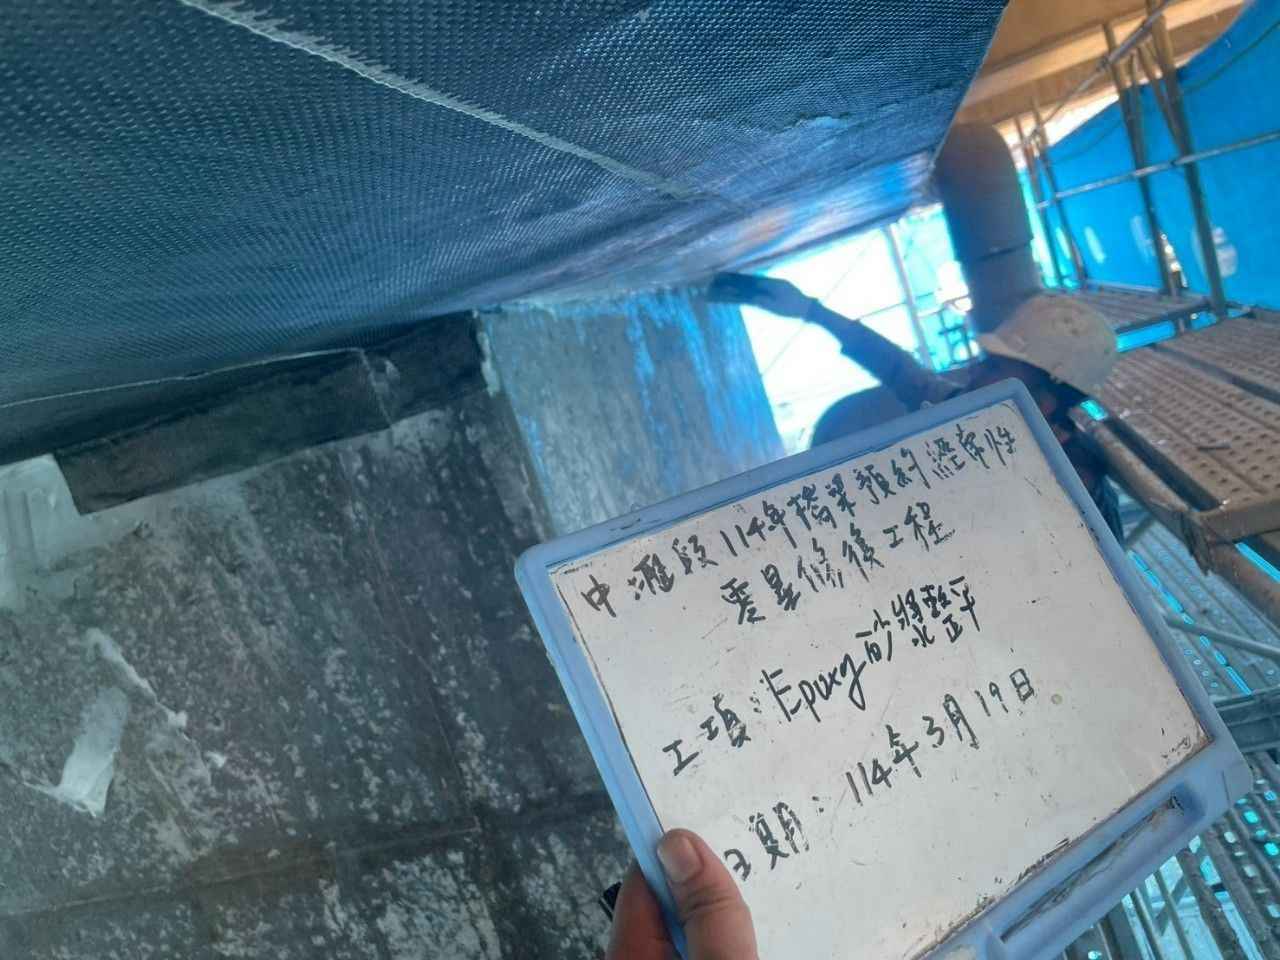 中壢段114年橋梁預約經常性
零星修復工程
工項:Epoxy砂漿整平
日期:114年3月19日